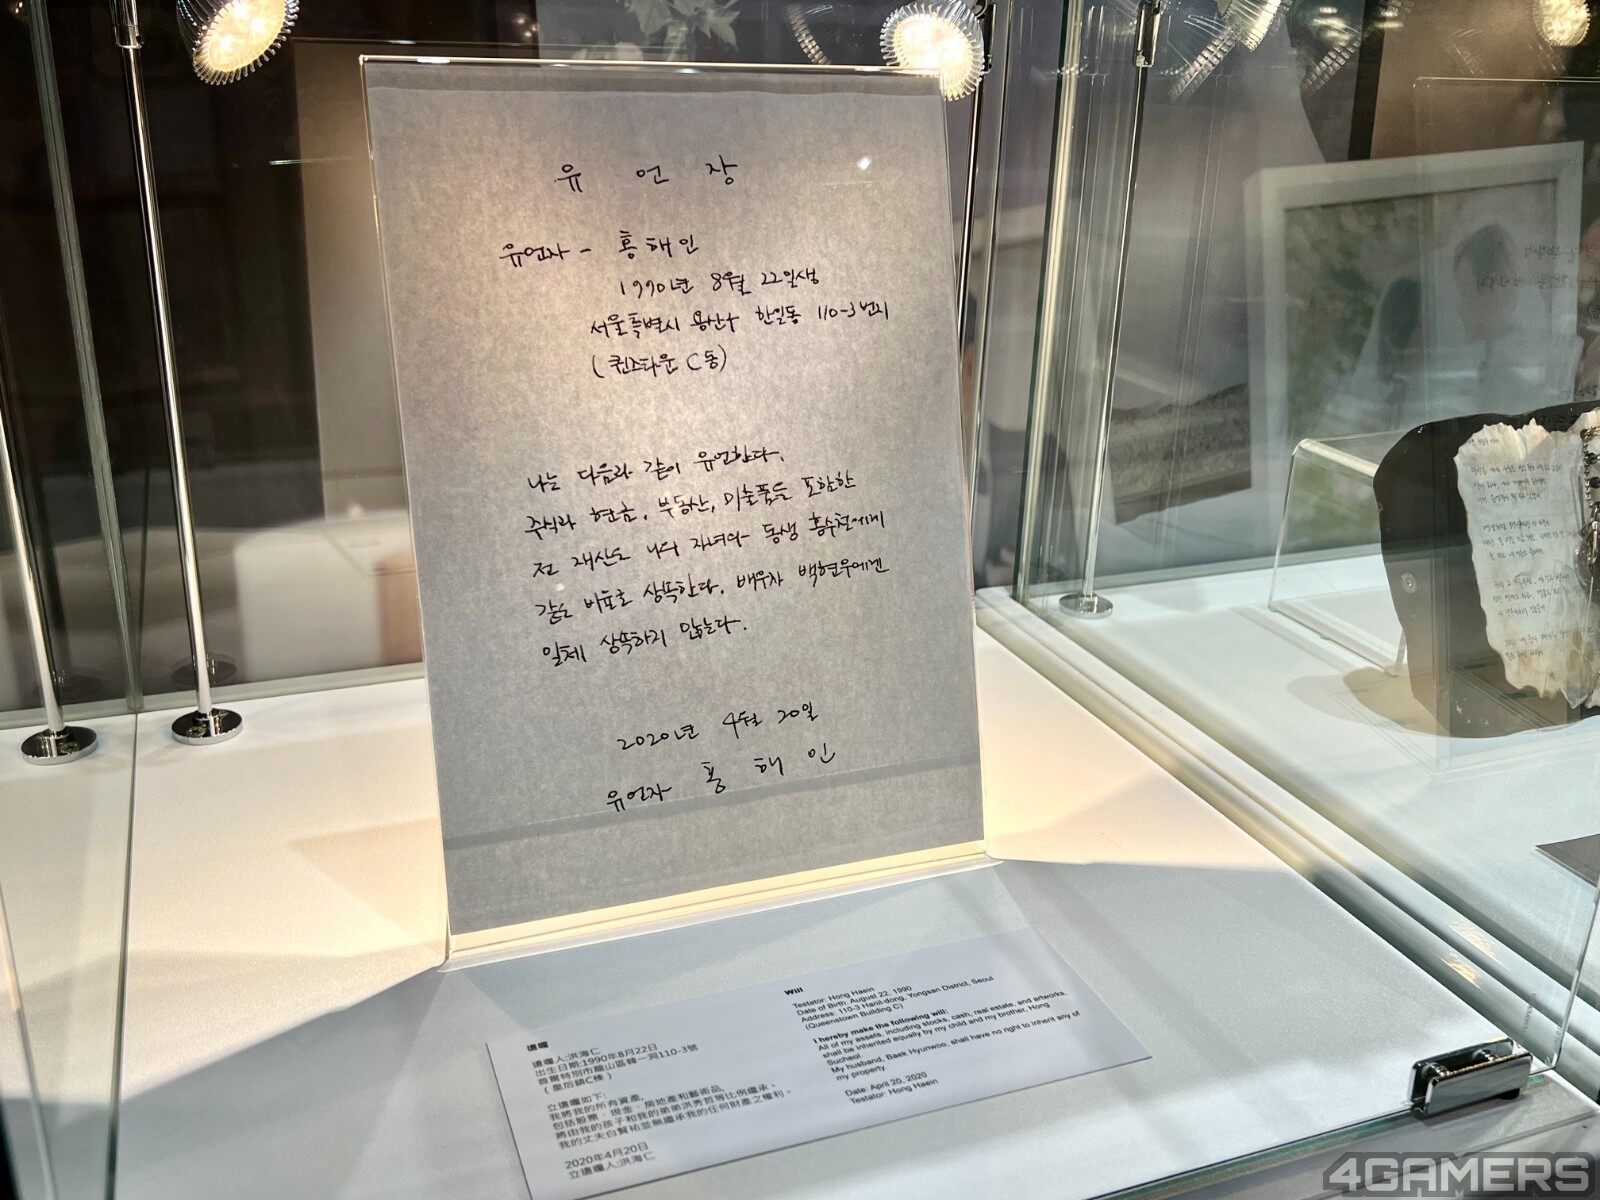 유 언 장
유언자 - 홍해인
1990년 8월 22일생
서울특별시 용산구 한일동 110-3번지
(퀸즈타운 C동)
나는 다음과 같이 유언한다.
주식과 현금, 부동산, 미술품을 포함한
전 재산은 나의 자녀와 동생 홍수철에게
같은 비율로 상속한다. 배우자 백현우에겐
일체 상속하지 않는다.
2020년 4월 20일
유언자 홍 해 인
遺囑
遺囑人:洪海仁
出生日期:1990年8月22日
首爾特別市龍山區韓一洞110-3號
(皇后鎮C棟)
立遺囑如下:
我將我的所有資產,
包括股票、現金、房地產和藝術品,
將由我的孩子和我的弟弟洪秀哲等比例繼承。
我的丈夫白賢祐並無繼承我的任何財產之權利。
2020年4月20日
立遺囑人:洪海仁
Will
Testator: Hong Haein
Date of Birth: August 22, 1990
Address: 110-3 Hanil-dong, Yongsan District, Seoul
(Queenstown Building C)
I hereby make the following will:
All of my assets, including stocks, cash, real estate, and artworks,
shall be inherited equally by my child and my brother, Hong
Sucheol.
My husband, Baek Hyunwoo, shall have no right to inherit any of
my property.
Date: April 20, 2020
Testator: Hong Haein
4GAMERS